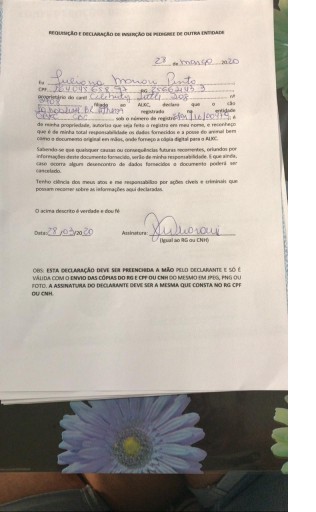 REQUISIÇÃO E DECLARAÇÃO DE INSERÇÃO DE PEDIGREE DE OUTRA ENTIDADE
28 de março de 2020
Eu Juliana Pinto
CPF RG
proprietário do canil nº
filiado ao ALKC, declaro que o cão
registrado na entidade
CBKC, sob o número de registro é
de minha propriedade, autorizo que seja feito o registro em meu nome, e reconheço
que é de minha total responsabilidade os dados fornecidos e a posse do animal bem
como o documento original em mãos, onde forneço a cópia digital para o ALKC.
Sabendo-se que quaisquer causas ou consequências futuras recorrentes, oriundos por
informações deste documento fornecido, serão de minha responsabilidade. E que ainda,
caso ocorra algum desencontro de dados fornecidos o documento poderá ser
cancelado.
Tenho ciência dos meus atos e me responsabilizo por ações cíveis e criminais que
possam recorrer sobre as informações aqui declaradas.
O acima descrito é verdade e dou fé
Data: 28/03/20 Assinatura:
(Igual ao RG ou CNH)
OBS: ESTA DECLARAÇÃO DEVE SER PREENCHIDA A MÃO PELO DECLARANTE E SÓ É
VÁLIDA COM O ENVIO DAS CÓPIAS DO RG E CPF OU CNH DO MESMO EM JPEG, PNG OU
FOTO. A ASSINATURA DO DECLARANTE DEVE SER A MESMA QUE CONSTA NO RG CPF
OU CNH.